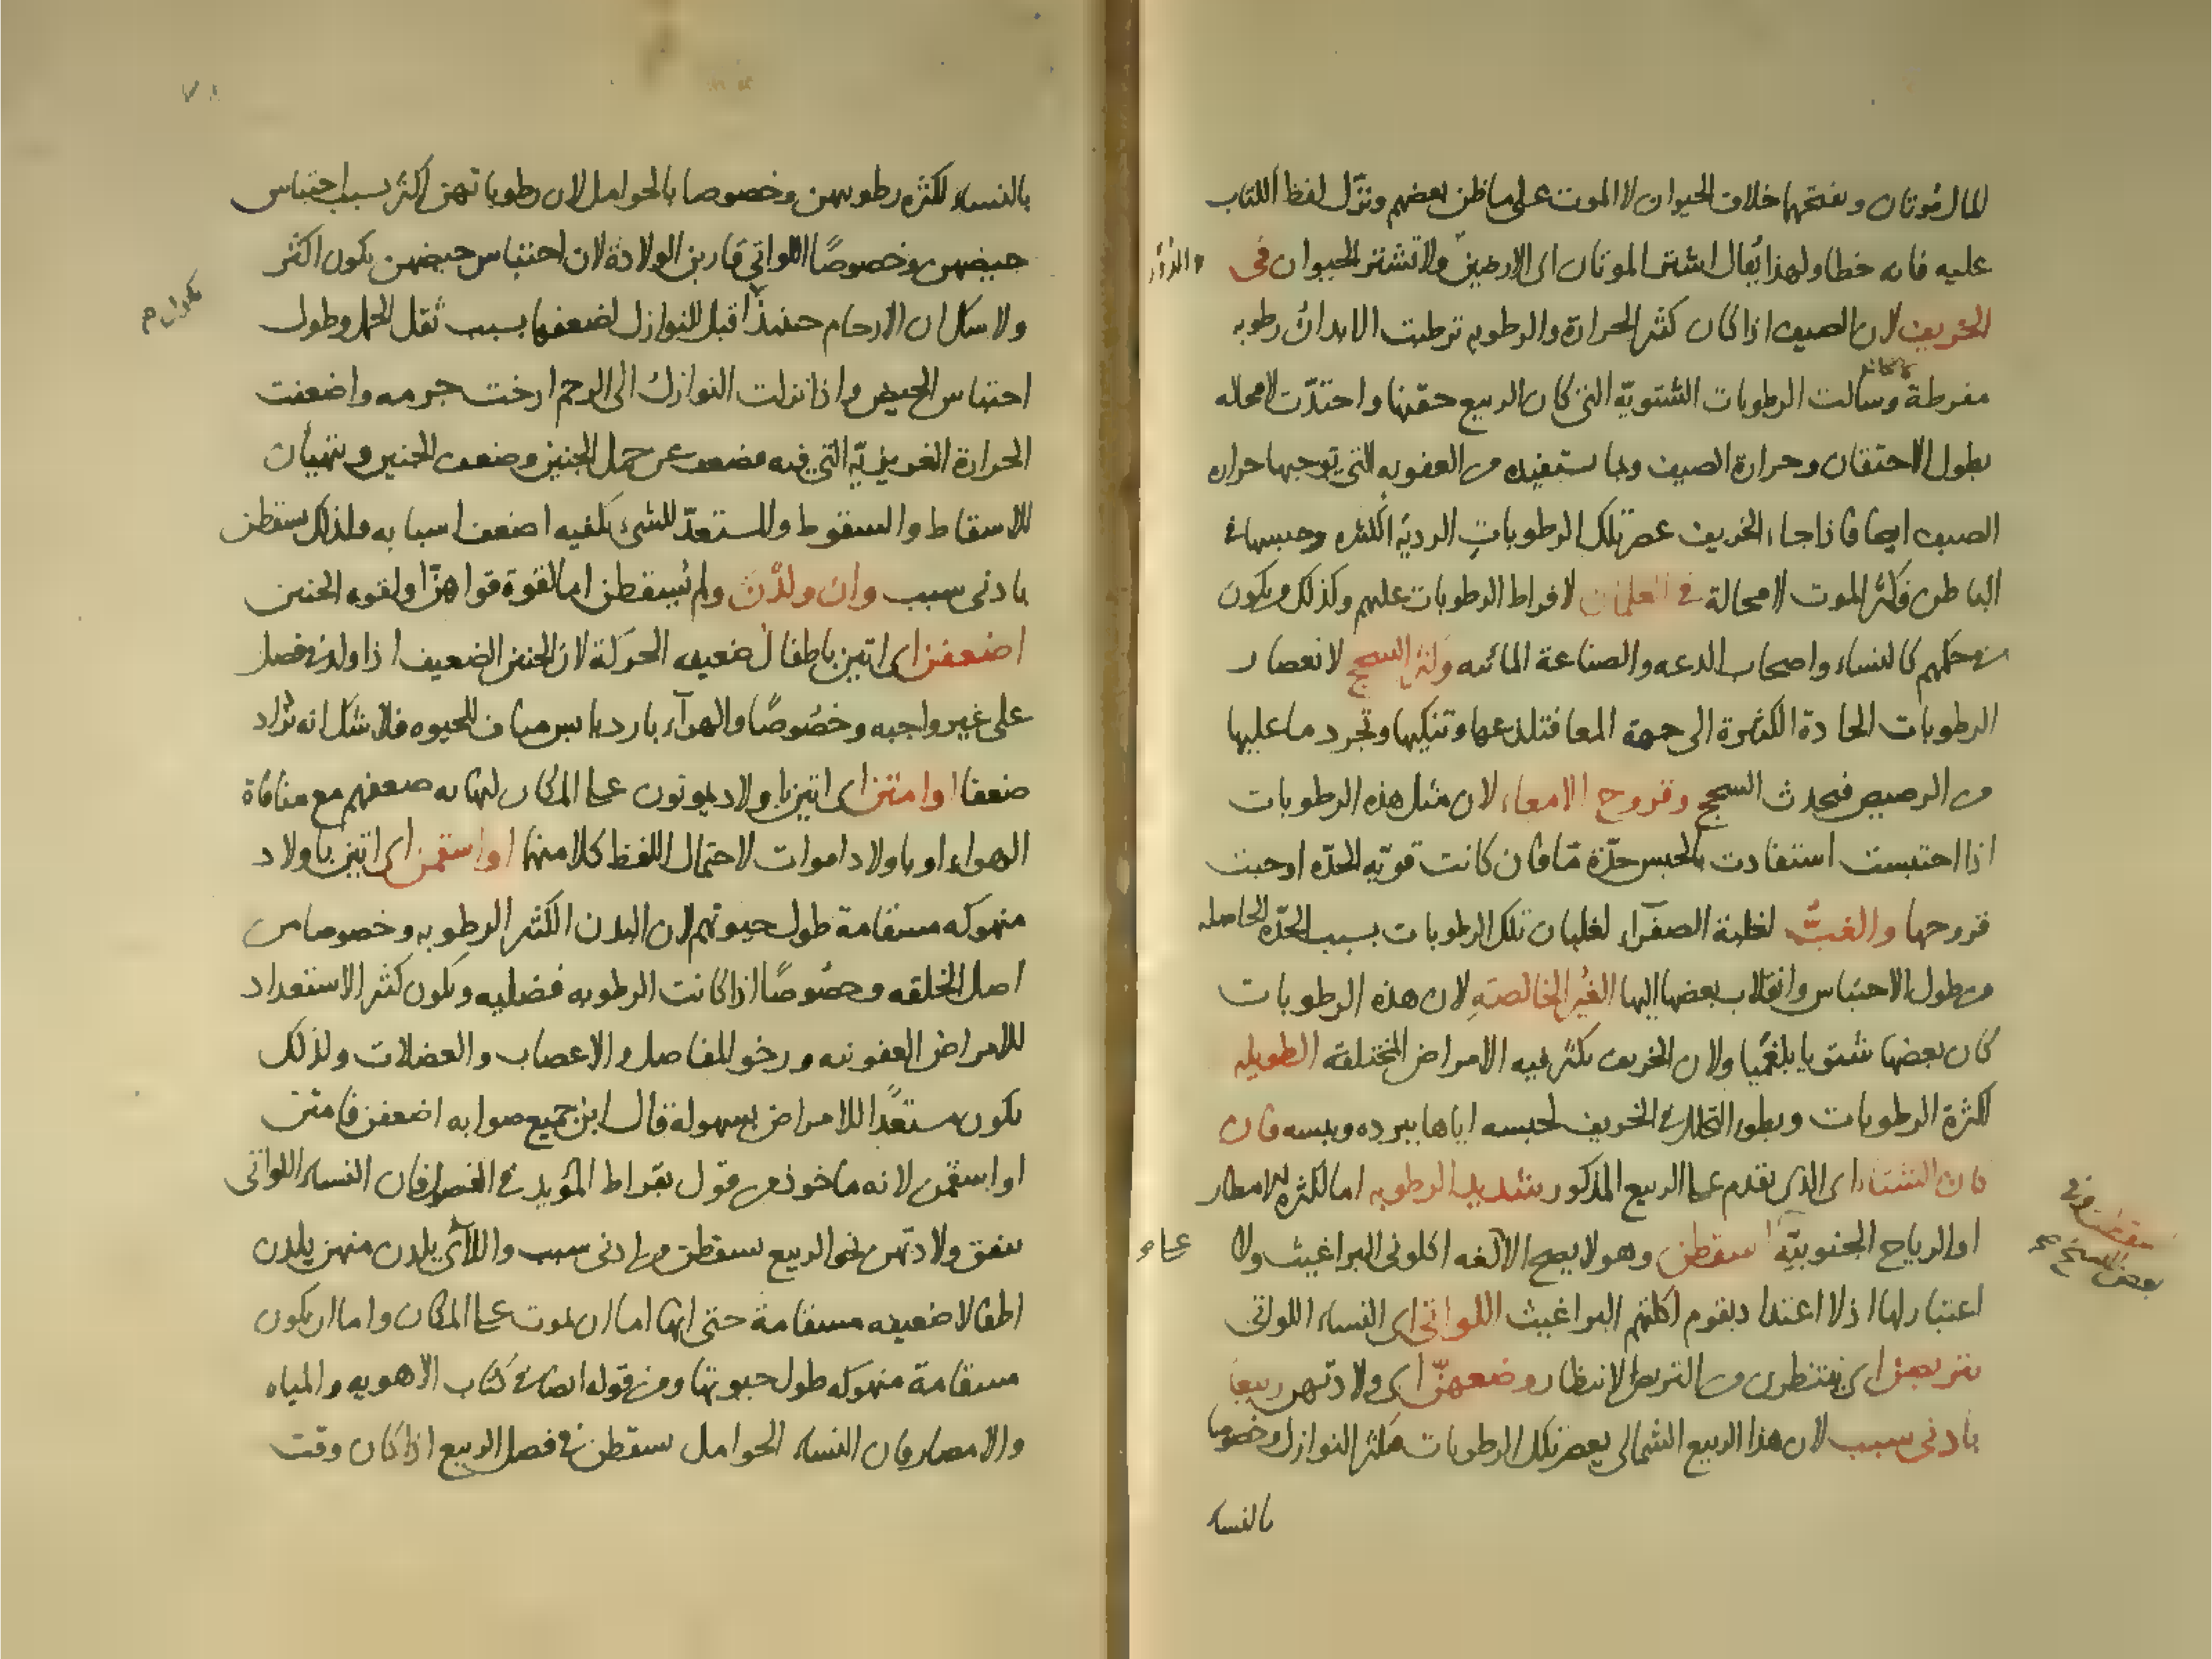 المال مُوتان وبفتحها خلاف الحيوان لا الموت على ما ظن بعضهم ونزّل لفظ الكتاب
عليه فانه خطا ولهذا يُقال اشتر الموتان اى الارضين ولا تشتر الحيوان فى
الخريف لان الصيف اذا كان كثير الحرارة والرطوبه ترطبت الابدان رطوبه
مفرطة وسالت الرطوبات الشتويّة التى كان الربيع حقنها واحتدّت لا محاله
بطول الاحتقان وحرارة الصيف وبما يستفيده من العفونه التى توجبها حراره
الصيف ايضا فاذا جاء الخريف عصر تلك الرطوباتِ الرديّه الكثيره وحبسها فى
الباطن فكثر الموت لا محالة فى الغلمان لافراط الرطوبات عليهم وكذلك من يكون
فى حكمهم كالنساء واصحاب الدعه والصناعة المائيه وكثر السحج لانعصار
الرطوبات الحادة الكثيرة الى جهة المعا فتلذعها وتنكيها وتجرد ما عليها
من الرصيص فيحدث السحج وقروح الامعاء لان مثل هذه الرطوبات
اذا احتبست استفادت بالحبس حدّة مّا فان كانت قويّه الحدّه اوجبت
قروحها والغبُّ لغلبة الصفرآء لغليان تلك الرطوبات بسبب الحدّه الحاصله
من طول الاحتباس وانقلاب بعضها اليها الغير الخالصةِ لان هذه الرطوبات
كان بعضها شتويا بلغميا ولان الخريف يكثر فيه الامراض المختلفة الطويله
لكثرة الرطوبات وبطو التحلل فى الخريف لحبسه اياها ببرده ويبسه فان
كان الشتاء اى الذى تقدم على الربيع المذكور شديد الرطوبه اما لكثره الامطار
او الرياح الجنوبيّة اسقطن وهو لا يصح الا لغه اكلونى البراغيث ولا
اعتبار لها اذ لا اعتداد بقوم اكلتهم البراغيث اللواتى اى النساء اللواتى
يتربصن اى ينتظرن من التربص الانتظار وضعهنّ اى ولادتهن ربيعا
بادنى سبب لان هذا الربيع الشمالى يعصر تلك الرطوبات فتكثر النوازل وخصوصا
بالنساء
بالنساء لكثره رطوبتهن وخصوصا بالحوامل لان رطوباتهن اكثر بسبب احتباس
حيضهن وخصوصًا اللواتي قاربن الولادة لان احتباس حيضهن يكون اكثر
ولا شك ان الارحام حينئذٍ اقبل للنوازل لضعفها بسبب ثقل الحمل وطول
احتباس الحيض واذا نزلت النوازل الى الرحم ارخت جرمه واضعفت
الحرارة الغريزيّة التي فيه فضعف عن حمل الجنين وضعف الجنين ويتهيأن
للاسقاط والسقوط والمستعدّ للشىء يكفيه اضعف اسبابه فلذلك يسقطن
بادنى سبب وان ولدْنَ ولم يُسقطن اما لقوة قواهنّ او لقوه الجنين
اضعفن اى اتين باطفال ضعيفه الحركة لان الجنين الضعيف اذا ولد فى فصل
على غير واجبه وخصُوصًا والهوآء بارد يابس مناف للحيوه فلا شك انه يزداد
ضعفا او امتن اى اتين باولاد يموتون على المكان لنهايه ضعفهم مع منافاة
الهواء او باولاد اموات لاحتمال اللفظ كلا منهما او اسقمن اى اتين باولاد
منهوكه مسقامة طول حيوتهم لان البدن الكثير الرطوبه وخصوصا من
اصل الخلقه وخصُوصًا اذا كانت الرطوبه فضليه ويكون كثير الاستعداد
للامراض العفونيه ورخو المفاصل والاعصاب والعضلات ولذلك
يكون مستعدًا للامراض بسهولة قال ابن جميع صوابه اضعفن فامتن
او اسقمن لانه ماخوذ من قول بقراط المؤيد فى الفصول فان النساء اللواتى
يتفق ولادتهن نحو الربيع يسقطن من ادنى سبب واللآتى يلدن منهن يلدن
اطفالا ضعيفه مسقامة حتى انها اما ان تموت على المكان واما ان يكون
مسقامة منهوكه طول حيوتها ومن قوله ايضا فى كتاب الاهويه والمياه
والامصار فان النساء الحوامل يسقطن فى فصل الربيع اذا كان وقت